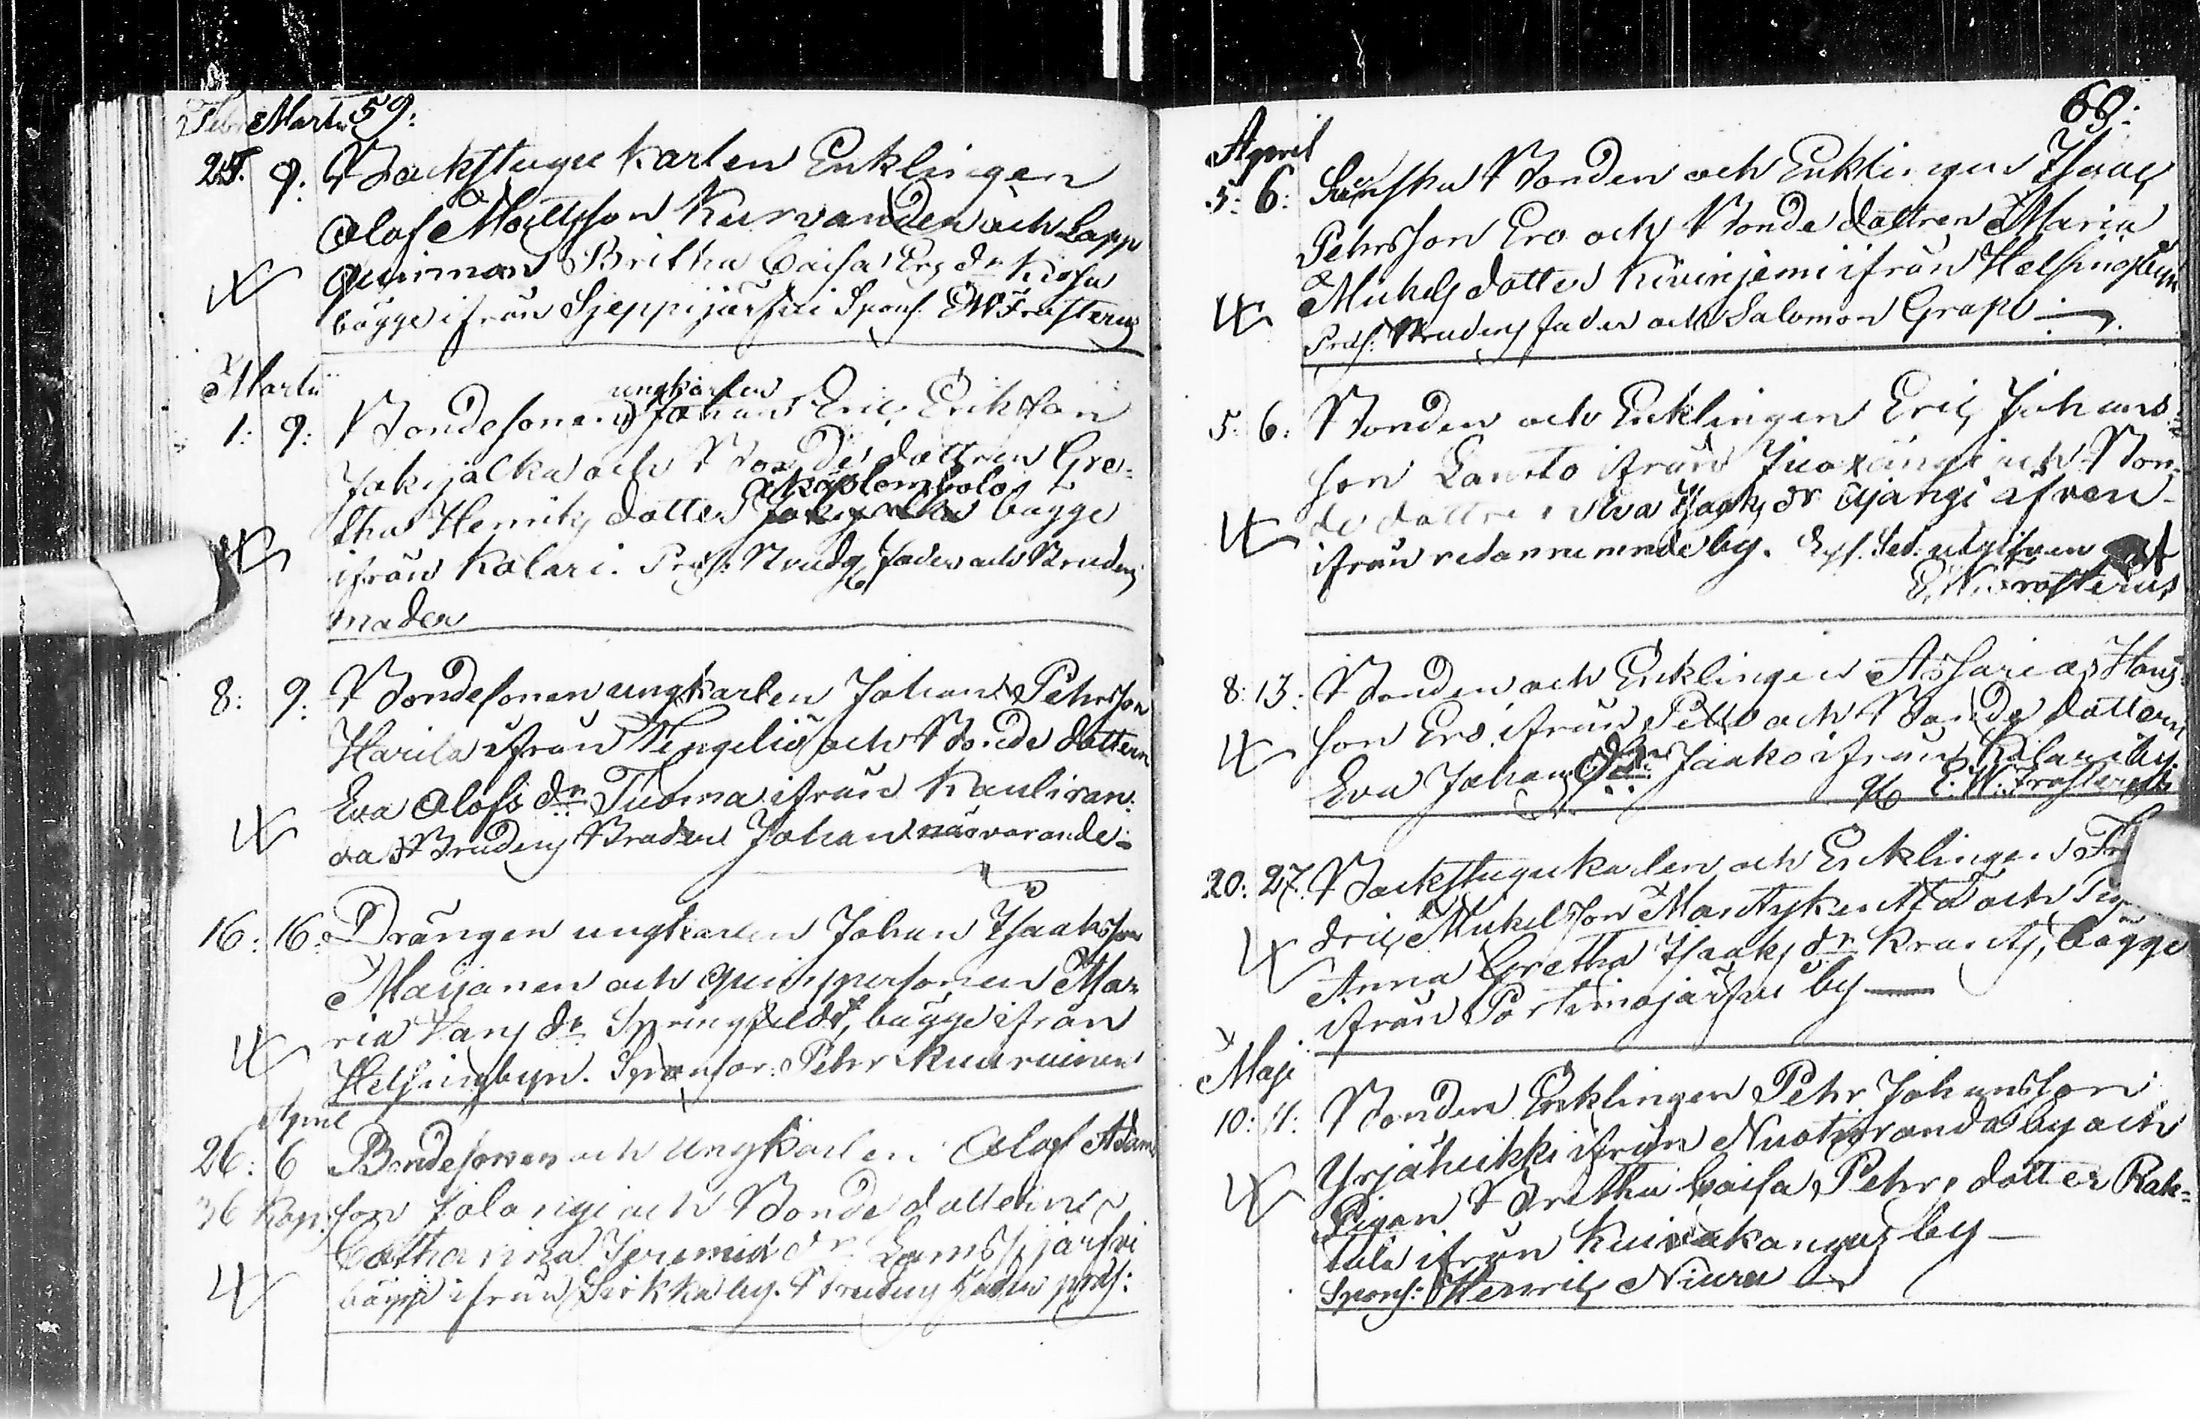 Febr Martii 59:
25. 9: Backstugu karlen Enklingen
Olof Mattsson Kurvanden och Lapp
quinnan Britha Caisa Ers dr Kosa
bägge ifrån Sjeppijärfvi Spons: E W Frosterus
Martii
ungkarlen
1: 9: Bondesonen Johan Eric Ericksson
Jokijalka och Bonde dottren Gre=
Äkäslombolo
tha Henriks dotter Jokijalka bägge
ifrån Kolari. Pres: Brudgs fader och Brudens
moder
8: 9: Bondesonen ungkarlen Johan Pehrsson
Harila ifrån Tengeliö och Bonde dottern
Eva Olofs dr Tuoma ifrån Kauliran:
da Brudens Broder Johan närvarande
16: 16: Drängen ungkarlen Johan Isaaksson
Marjanen och Quinspersonen Ma=
ria Lars dr Springfeldt, bägge ifrån
Helsingbyn. Sponsor: Pehr Kuuruinen
April
26: 6 Bondesonen och Ungkarlen Olof Adams
36 Kop: son Jolangi och Bonde dotteren
Catharina Jeremiæ dr Lamsijärfvi
bägge ifrån Sirkka by. Brudens fader pres:
60:
April
5: 6: Bonden och Enklingen Isaac
Pehrsson Ero och Bonde dottren Maria
Michels dotter Kivinjemi ifrån Helsingbyn
Pres: Brudens fader och Salomon Grape
5: 6: Bonden och Enklingen Eric Johans=
son Lanto ifrån Juoxängi och Bon=
de dottren Eva Isaks dr Äjangi äfven
ifrån redannemnde by. utgifven af
E. W. Frosterus
8: 13: Bonden och Enklingen Assarias Hans=
son Ero ifrån Pello och Bonde dottern
Eva Johans dr Jaako ifrån Kolari by.
E. W. Frosterus
20: 27. Backstugukarlen och Enklingen Fr
dric Mickelsson Mantykentta och Pig
Anna Gretha Isaaks dr Krants, bägge
ifrån Portimojärfvi by
Maji
10: 11: Bonden Enklingen Pehr Johansson
Yrjäheikki ifrån Nuotioranda by och
Pigan Bretha Caisa Pehrs dotter Rau=
tula ifrån Kuivakangas by
Spons: Henric Niura